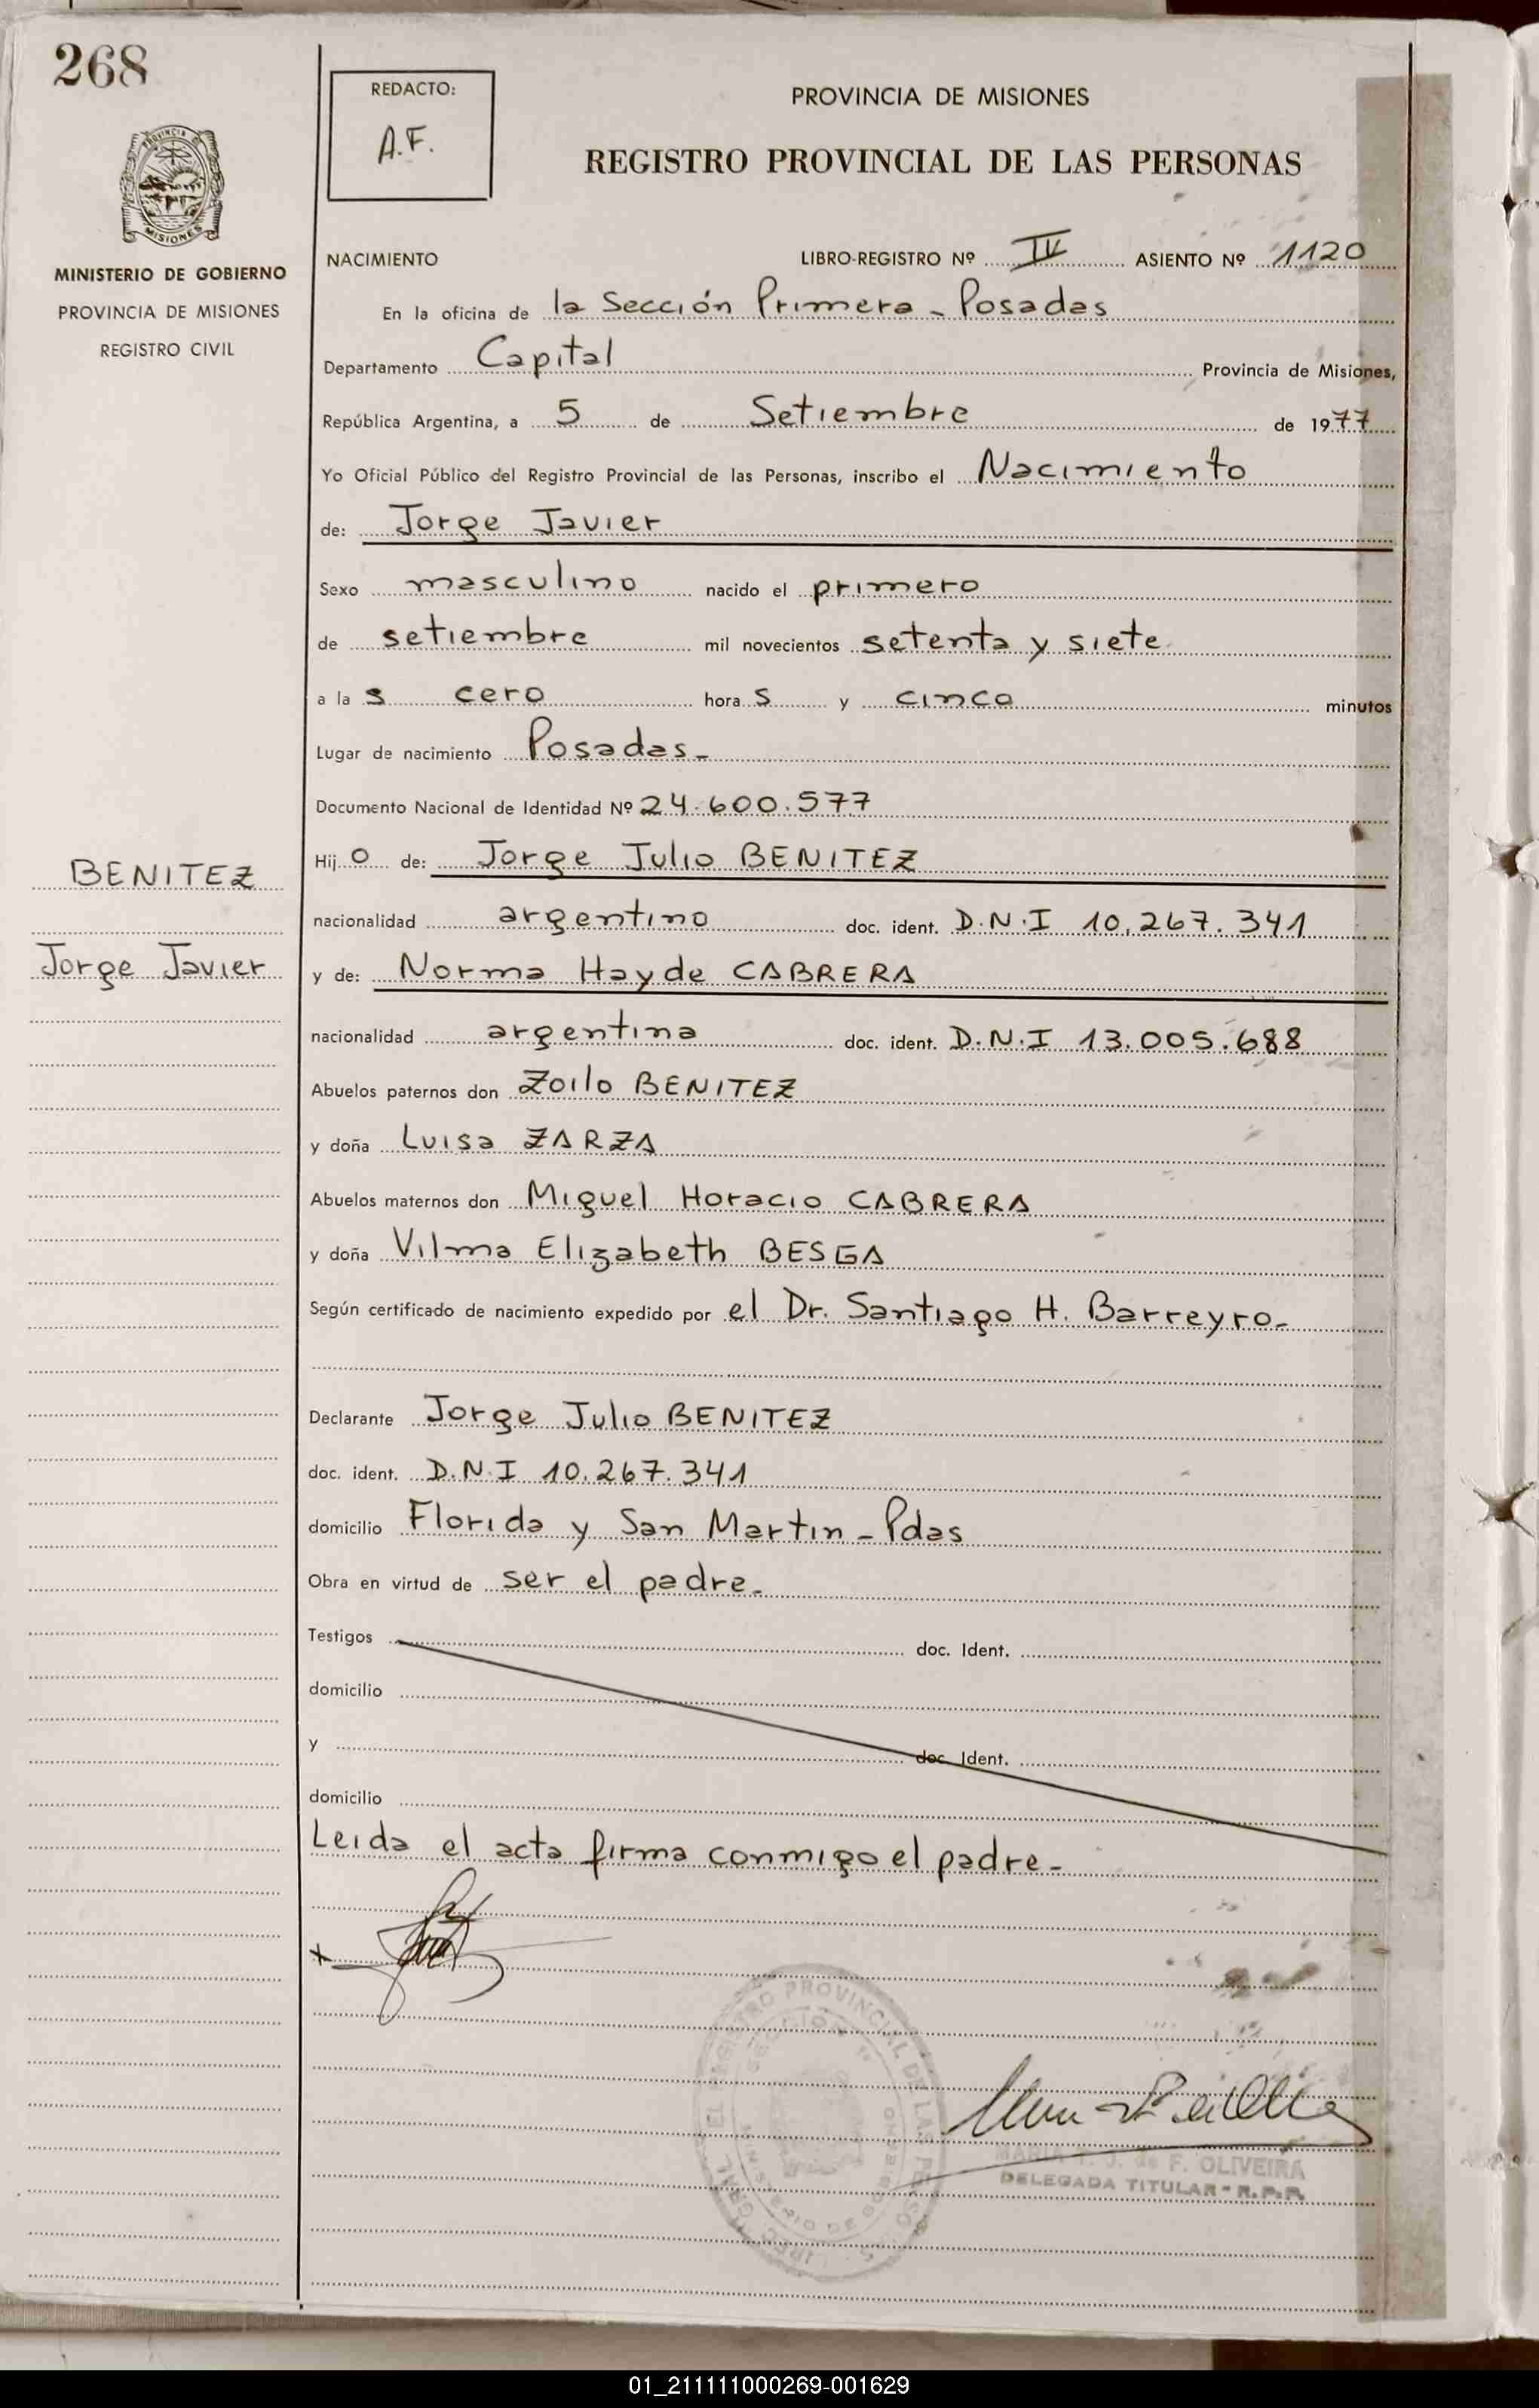 268
REDACTO:
A.F.
PROVINCIA DE MISIONES
REGISTRO PROVINCIAL DE LAS PERSONAS
MISIONES
MINISTERIO DE GOBIERNO
PROVINCIA DE MISIONES
REGISTRO CIVIL
NACIMIENTO LIBRO-REGISTRO Nº IV ASIENTO Nº 1120
En la oficina de la Sección Primera - Posadas
Departamento Capital Provincia de Misiones,
República Argentina, a 5 de Setiembre de 1977
Yo Oficial Público del Registro Provincial de las Personas, inscribo el Nacimiento
de: Jorge Javier
Sexo masculino nacido el primero
de setiembre mil novecientos setenta y siete
a la s cero hora s y cinco minutos
Lugar de nacimiento Posadas-
Documento Nacional de Identidad Nº 24.600.577
BENITEZ
Jorge Javier
Hij o de: Jorge Julio BENITEZ
nacionalidad argentino doc. ident. D.N.I 10.267.341
y de: Norma Hayde CABRERA
nacionalidad argentina doc. ident. D.N.I 13.005.688
Abuelos paternos don Zoilo BENITEZ
y doña Luisa ZARZA
Abuelos maternos don Miguel Horacio CABRERA
y doña Vilma Elizabeth BESGA
Según certificado de nacimiento expedido por el Dr. Santiago H. Barreyro-
Declarante Jorge Julio BENITEZ
doc. ident. D.N.I 10.267.341
domicilio Florida y San Martin - Pdas
Obra en virtud de ser el padre-
Testigos doc. Ident.
domicilio
y doc. Ident.
domicilio
Leida el acta firma conmigo el padre-
MARIA T. J. de F. OLIVEIRA
DELEGADA TITULAR - R.P.P.
01_211111000269-001629